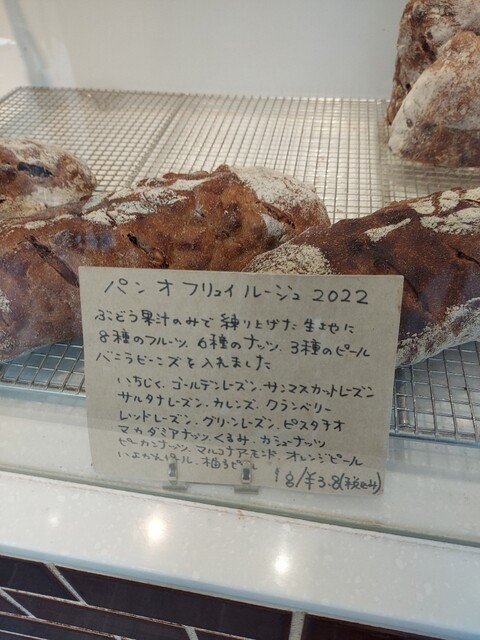 パン オ フリュイ ルージュ 2022
ぶどう果汁のみで 練り上げた 生地に
8種のフルーツ、6種のナッツ、3種のピール
バニラビーンズを入れました
いちじく、ゴールデンレーズン、サンマスカットレーズン
サルタナレーズン、カレンズ、クランベリー
レッドレーズン、グリーンレーズン、ピスタチオ
マカダミアナッツ、くるみ、カシューナッツ
ピーカンナッツ、マルコナアーモンド、オレンジピール
いよかんピール、柚子ピール
1g/¥3.8(税込み)